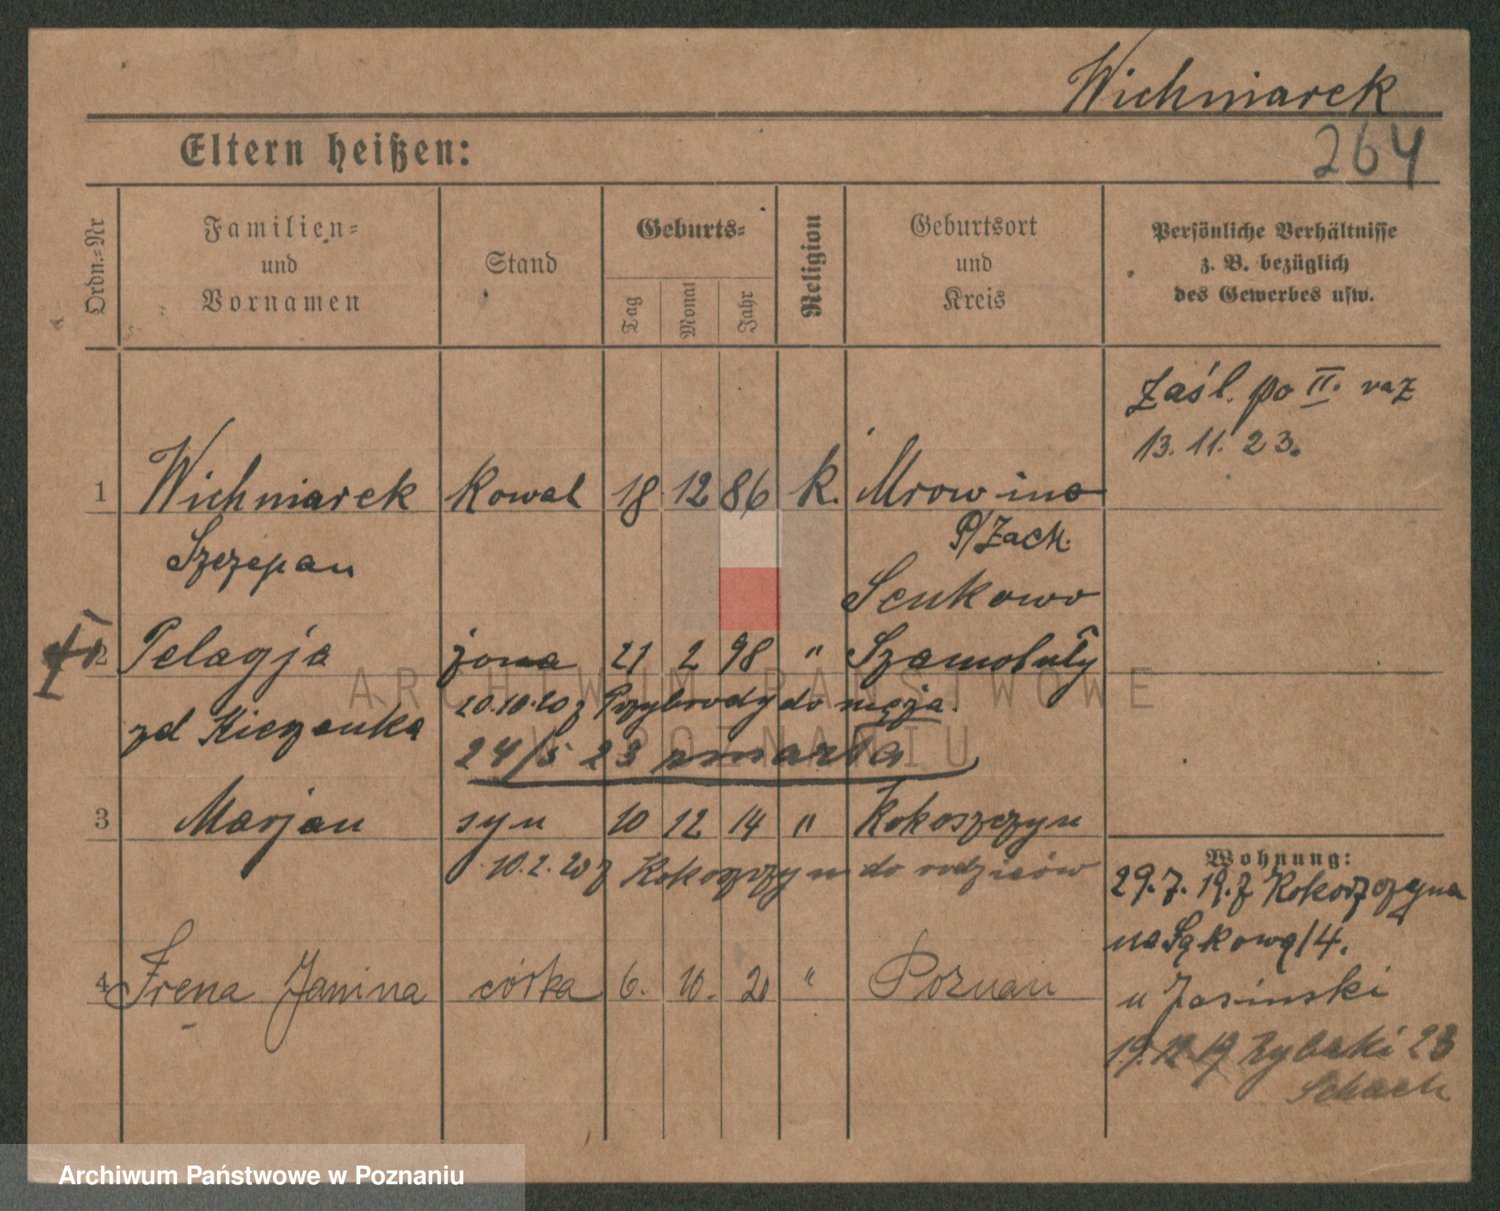 Wichniarek
264
Eltern heißen:
Ordn.-Nr
Familien-
und
Vornamen
Stand
Geburts-
Tag
Monat
Jahr
Religion
Geburtsort
und
Kreis
Persönliche Verhältnisse
z. B. bezüglich
des Gewerbes usw.
Zaśl. po II. raz
13. 11. 23.
1 Wichniarek Kowal 18 12 86 k. Mrowino
Szczepan P/Zach.
Szamotuły
2 Pelagja żona 21 2 98 "
20.10.20 z Przybrody do męża.
zd
24/5 23 zmarła
3 Marjan syn 10 12 14 " Kokoszczyn
10.2.20 z Kokoszczyn do rodziców
Wohnung:
29.7.19. z Kokoszczyna
na Łąkową 14.
4 Irena Janina córka 6. 10. 20 " Poznań
u Jasinski
19.12.19 Rybaki 23
ARCHIWUM PAŃSTWOWE
W POZNANIU
Archiwum Państwowe w Poznaniu